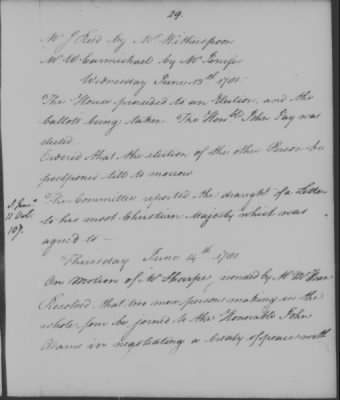 29.
Mr J Reed by Mr Witherspoon
Mr W Carmichael by Mr Jenifer
Wednesday June 13th 1781
The House proceeded to an Election, and the
ballots being taken The Honble John Jay was
elected
Ordered that the election of the other Person be
postponed till to morrow
The Committee reported the draught of a Letter
to his most Christian Majesty which was
agreed to —
Thursday June 14th 1781
On Motion of Mr Sharpe, seconded by Mr McKean
Resolved that two more persons making in the
whole four be joined to the Honorable John
Adams in negotiating a treaty of peace with
11 Vol.
107.